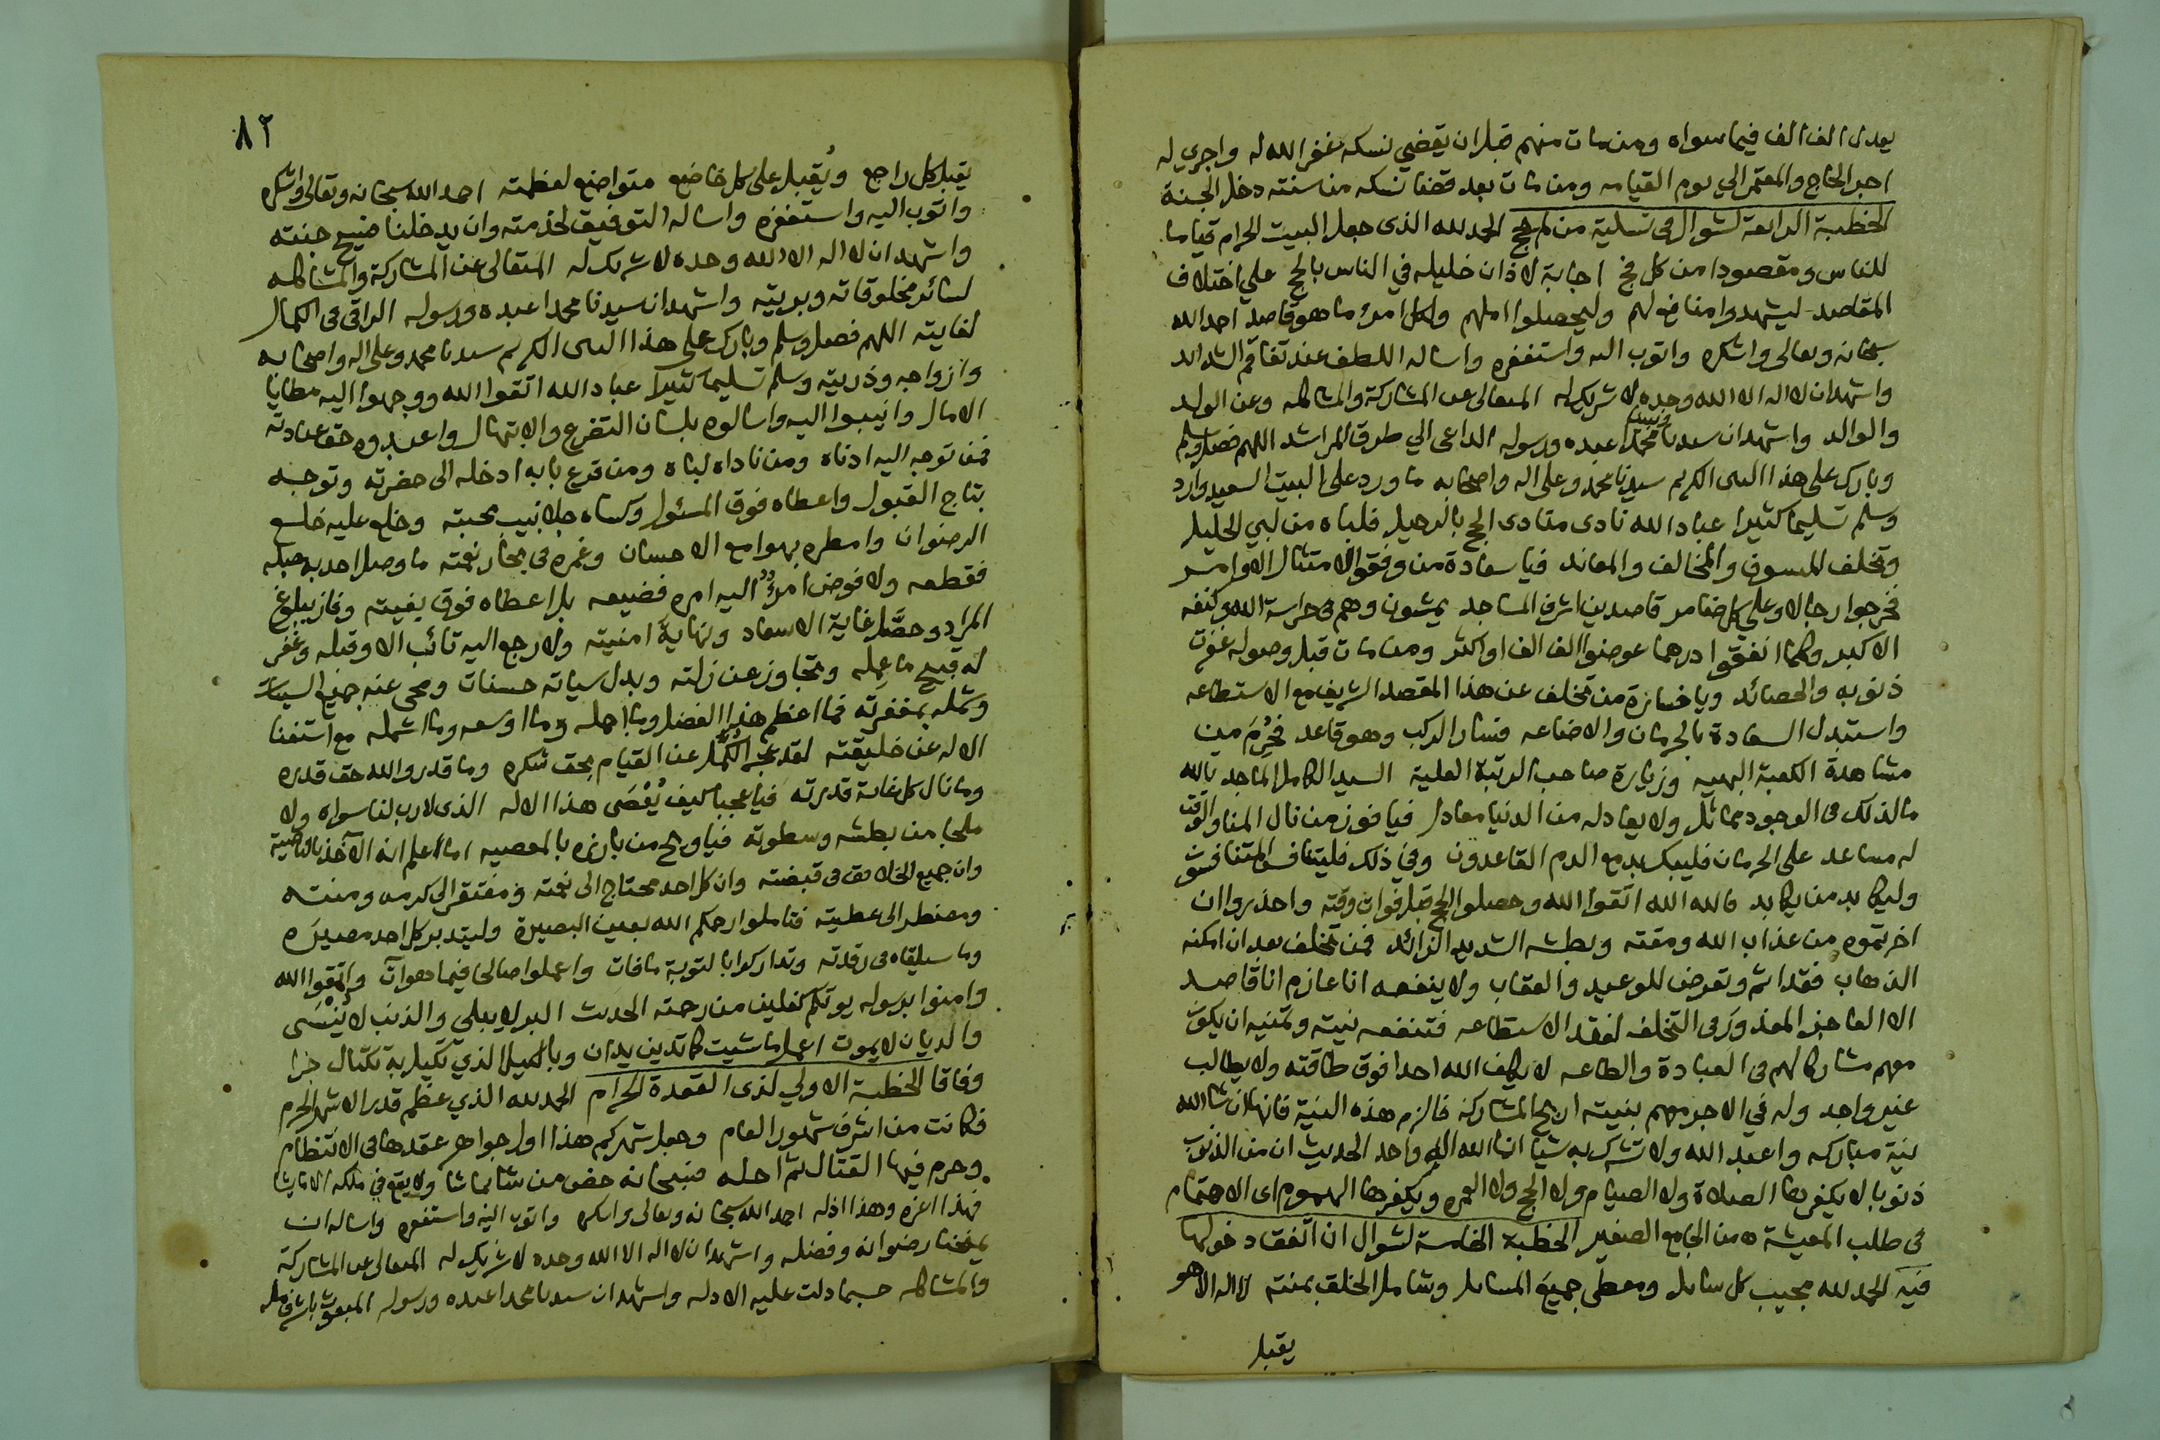 يعدل الف الف فيما سواه ومن مات منهم قبل ان يقضي نسكه غفر الله له واجري له
اجر الحاج والمعتمر الي يوم القيامه ومن مات بعد قضا نسكه من سنته دخل الجنة
الخطبة الرابعة لشوال في تسلية من لم يحج الحمد لله الذى جعل البيت الحرام قياما
للناس ومقصودا من كل فج اجابة لاذان خليله في الناس بالحج علي اختلاف
المقاصد ليشهدوا منافع لهم وليحصلوا املهم ولكل امرئ ما هو قاصد احمد الله
سبحانه وتعالى واشكره واتوب اليه واستغفره واساله اللطف عند تفاقم الشدائد
واشهد ان لا اله الا الله وحده لا شريك له المتعالى عن المشاركة والمشاكله وعن الولد
والوالد واشهد ان سيدنا ونبينا محمدا عبده ورسوله الداعي الي طرق المراشد اللهم فصل وسلم
وبارك على هذا النبى الكريم سيدنا محمد وعلى اله واصحابه ما ورد على البيت السعيد وارد
وسلم تسليما كثيرا عباد الله نادى منادى الحج بالرحيل فلباه من لبي الخليل
وتخلف المسوف والمخالف والمعاند فيا سعادة من وفقوا لامتثال الاوامر
فخرجوا رجالا وعلى كل ضامر قاصدين اشرف المساجد يمشون وهم فى حراسة الله وكنفه
الاكبر وكلما انفقوا درهما عوضوا الف الف او اكثر ومن مات قبل وصوله غفرت
ذنوبه والحصائد ويا خسارة من تخلف عن هذا المقصد الشريف مع الاستطاعه
واستبدل السعادة بالحرمان والاضاعه فسار الركب وهو قاعد فحُرِمَ من
مشاهدة الكعبة البهيه وزيارة صاحب الرتبة العلية السيد الكامل الماجد بالله
ما لذلك فى الوجود مماثل ولا يعادله من الدنيا معادل فيا فوز من نال المنا والوقت
له مساعد على الحرمان فليبك بدمع الدم القاعدون وفي ذلك فليتنافس المتنافسون
وليكابد من يكابد فالله الله اتقوا الله وحصلوا الحج قبل فوات وقته واحذروا ان
اخرتموه من عذاب الله ومقته وبطشه الشديد الزائد فمن تخلف بعد ان امكنه
الذهاب فقد اثم وتعرض للوعيد والعقاب ولا ينفعه انا عازم انا قاصد
الا العاجز المعذور فى التخلف لفقد الاستطاعه فتنفعه نيته وتمنيه ان يكون
معهم مشاركا لهم فى العبادة والطاعه لا يكلف الله احدا فوق طاقته ولا يطالب
غير واجد وله في الاجر معهم بنيته ارجح المشاركه فالزم هذه النية فانها ان شا الله
نية مباركه واعبد الله ولا تشرك به شيا انما الله اله واحد الحديث ان من الذنوب
ذنوبا لا يكفرها الصلاة ولا الصيام ولا الحج ولا العمره ويكفرها الهموم اى الاهتمام
فى طلب المعيشة من الجامع الصغير الخطبة الخامسة لشوال ان اتفق دخولها
فيه الحمد لله مجيب كل سايل ومعطى جميع المسايل وشامل الخلق بمنته لا اله الا هو
يقبل
٨٢
يقبل كل راجع ويُقبل على كل خاضع متواضع لعظمته احمد الله سبحانه وتعالى واشكره
واتوب اليه واستغفره واساله التوفيق لخدمته وان يدخلنا فسيح جنته
واشهد ان لا اله الا الله وحده لا شريك له المتعالى عن المشاركة والمشاكله
لسائر مخلوقاته وبريته واشهد ان سيدنا محمدا عبده ورسوله الراقى فى الكمال
لغايته اللهم فصل وسلم وبارك على هذا النبى الكريم سيدنا محمد وعلى اله واصحابه
وازواجه وذريته وسلم تسليما كثيرا عباد الله اتقوا الله ووجهوا اليه مطايا
الامال وانيبوا اليه واسالوه بلسان التضرع والابتهال واعبدوه حق عبادته
فمن توجه اليه ادناه ومن ناداه لباه ومن قرع بابه ادخله الى حضرته وتوجه
بتاج القبول واعطاه فوق المسئول وكساه جلابيب محبته وخلع عليه خلع
الرضوان وامطره بهوامع الاحسان وغمره فى بحار نعمته ما وصل احد به حبله
فقطعه ولا فوض امرؤ اليه امره فضيعه بل اعطاه فوق بغيته وفاز ببلوغ
المراد وحصَّل غاية الاسعاد ونهاية امنيته ولا رجع اليه تائب الا وقبله وغفر
له قبيح ما عمله وتجاوز عن زلته وبدل سياته حسنات ومحى عنه جميع السيات
وشمله بمغفرته فما اعظم هذا الفضل وما اجمله وما اوسعه وما اشمله مع استغنا
الاله عن خليقته لقد عجز الكُمَّل عن القيام بحق شكره وما قدروا الله حق قدره
وما نال كل غاية قدرته فيا عجبا كيف يُعْصَى هذا الاله الذى لا رب لنا سواه ولا
ملجا من بطشه وسطوته فيا ويح من بارزه بالمعصيه اما علم انه الآخذ بالناصية
وان جميع الخلايق فى قبضته وان كل احد محتاج الى نعمته ومفتقر الى كرمه ومنته
ومضطر الى عطيته فتاملوا رحمكم الله بعين البصيرة وليتدبر كل احد مصيره
وما سيلقاه فى رقدته وتداركوا بالتوبة ما فات واعملوا صالحا فيما هو آت واتقوا الله
وامنوا برسوله يوتكم كفلين من رحمته الحديث البر لا يبلي والذنب لا يُنْسَى
والديان لا يموت اعمل ما شيت كما تدين تدان وبالكيل الذي تكيل به تكتال جزا
وفاقا الخطبة الاولي لذى القعدة الحرام الحمد لله الذي عظم قدر الاشهر الحرم
فكانت من اشرف شهور العام وجعل شهركم هذا اول جواهر عقدها فى الانتظام
وحرم فيها القتال ثم احله فسبحانه خص من شا بما شا ولا يقع في ملكه الا ما يشا
فهذا اعزه وهذا اذله احمد الله سبحانه وتعالى واشكره واتوب اليه واستغفره واساله ان
يمنحنا رضوانه وفضله واشهد ان لا اله الا الله وحده لا شريك له المتعالى عن المشاركة
والمشاكله حسبما دلت عليه الادله واشهد ان سيدنا محمدا عبده ورسوله المبعوث باشرف مله